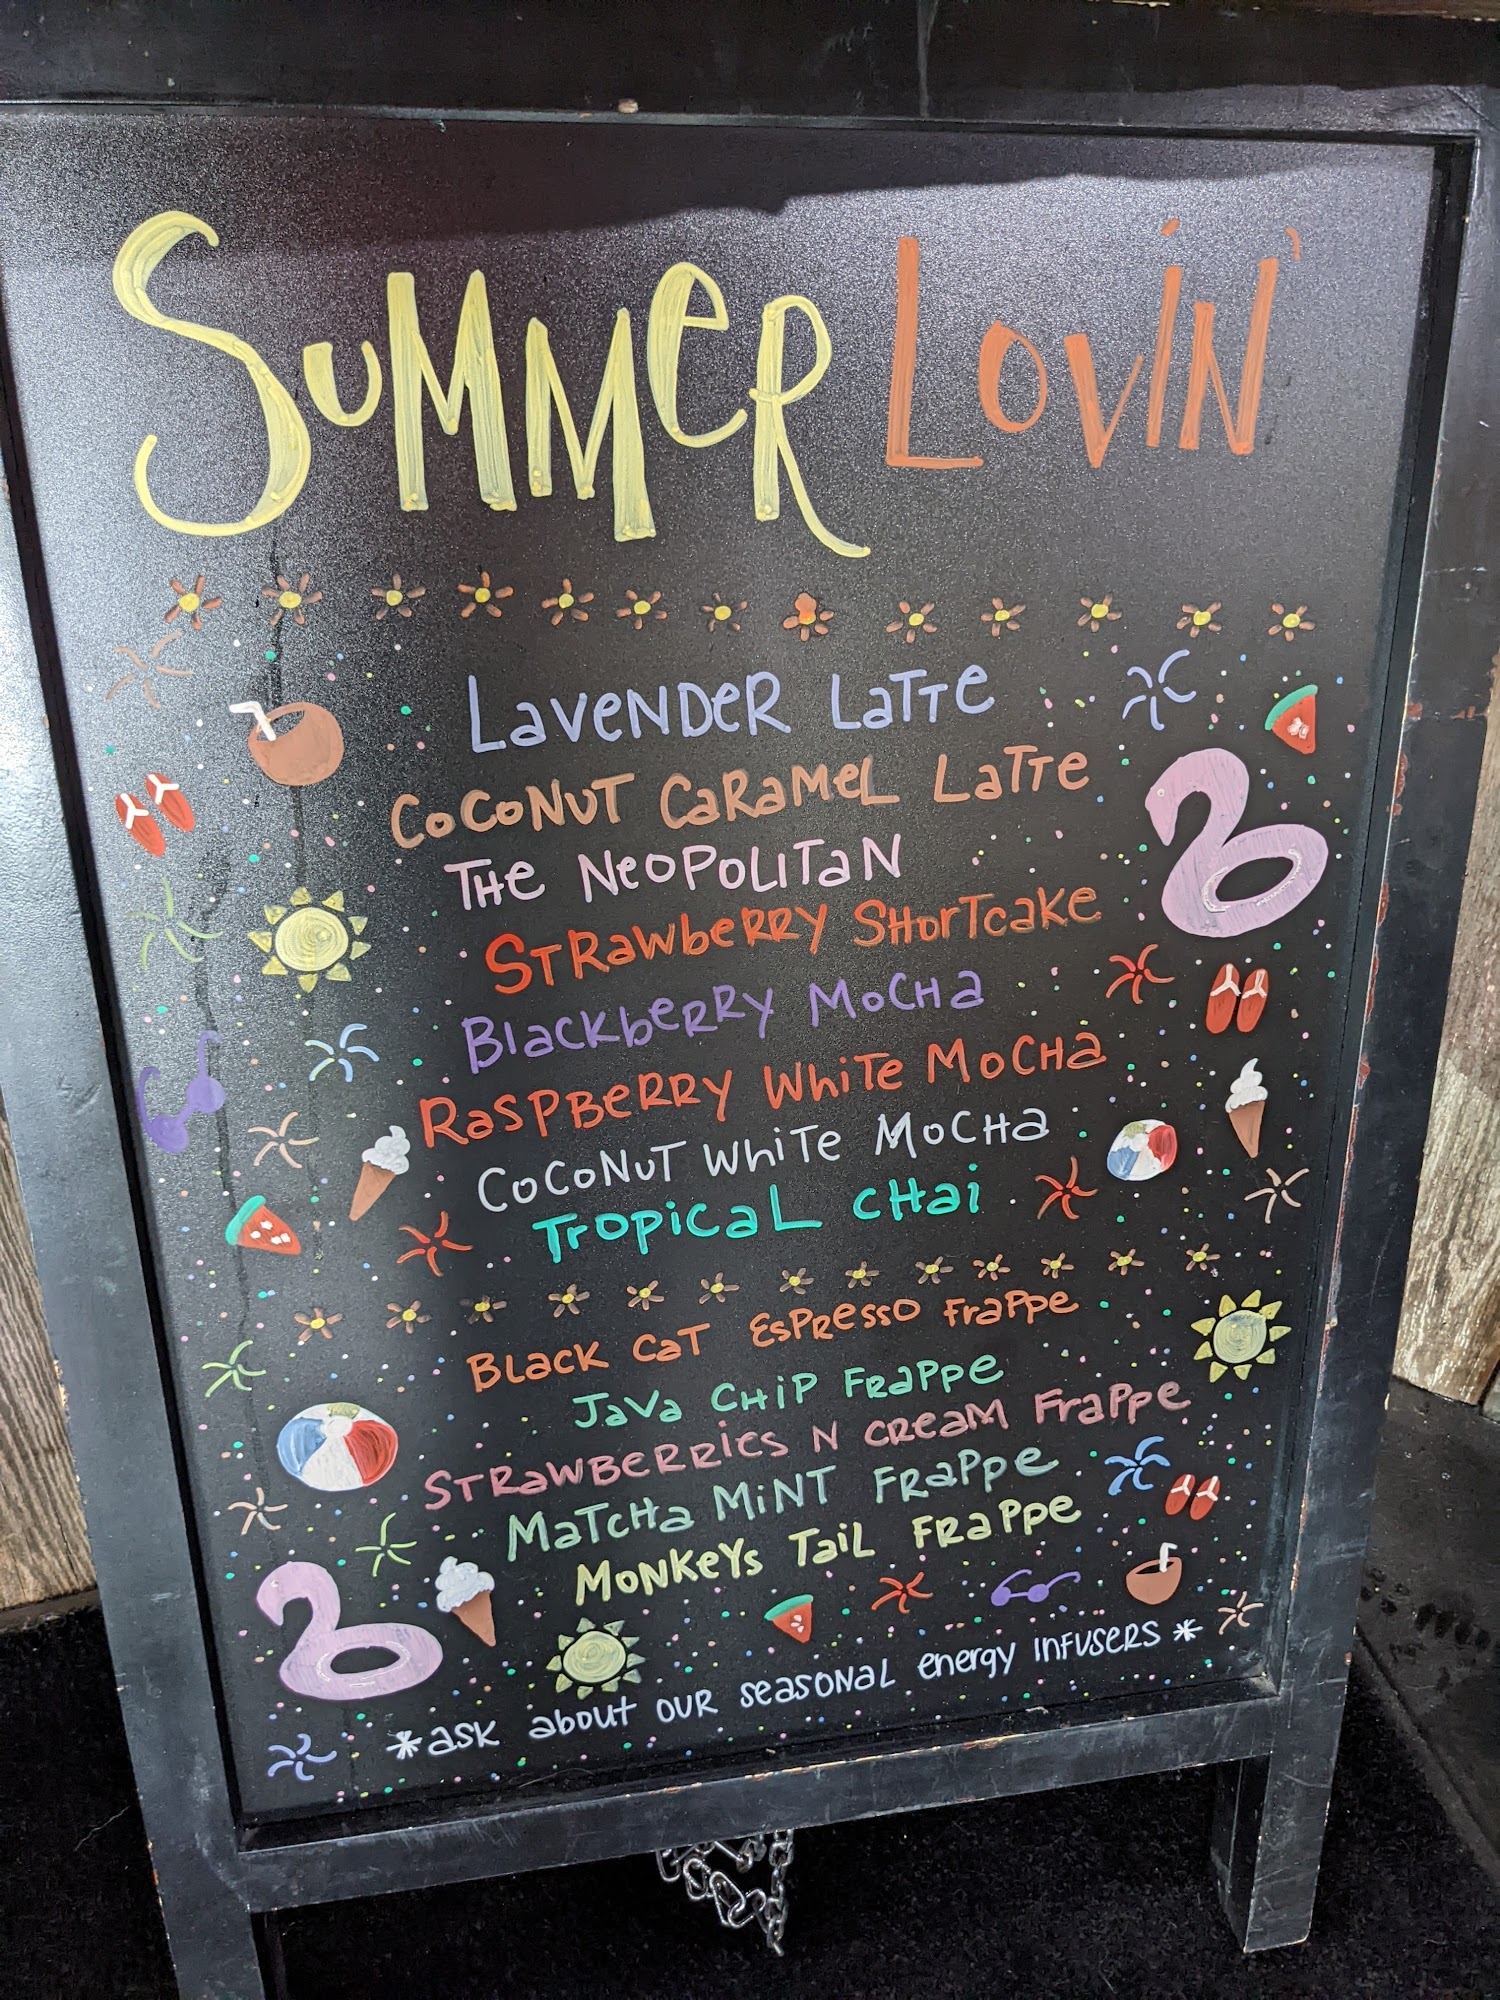 Summer Lovin'
Lavender Latte
Coconut Caramel Latte
The Neopolitan
Strawberry Shortcake
Blackberry Mocha
Raspberry White Mocha
Coconut White Mocha
Tropical Chai
Black Cat Espresso Frappe
Java Chip Frappe
Strawberries N Cream Frappe
Matcha Mint Frappe
Monkeys Tail Frappe
*ask about our seasonal energy infusers*